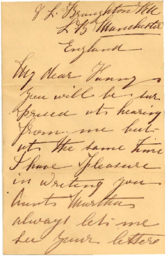 Manchester
England
My Dear Fanny
you will be sur
prised at hearing
from me but
at the same time
I have pleasure
in writing you
Aunt Martha
always lets me
see your letters